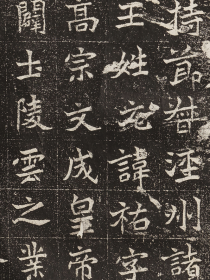 持節督涇州諸
王姓元諱祐字
高宗文成皇帝
闢土陵雲之業